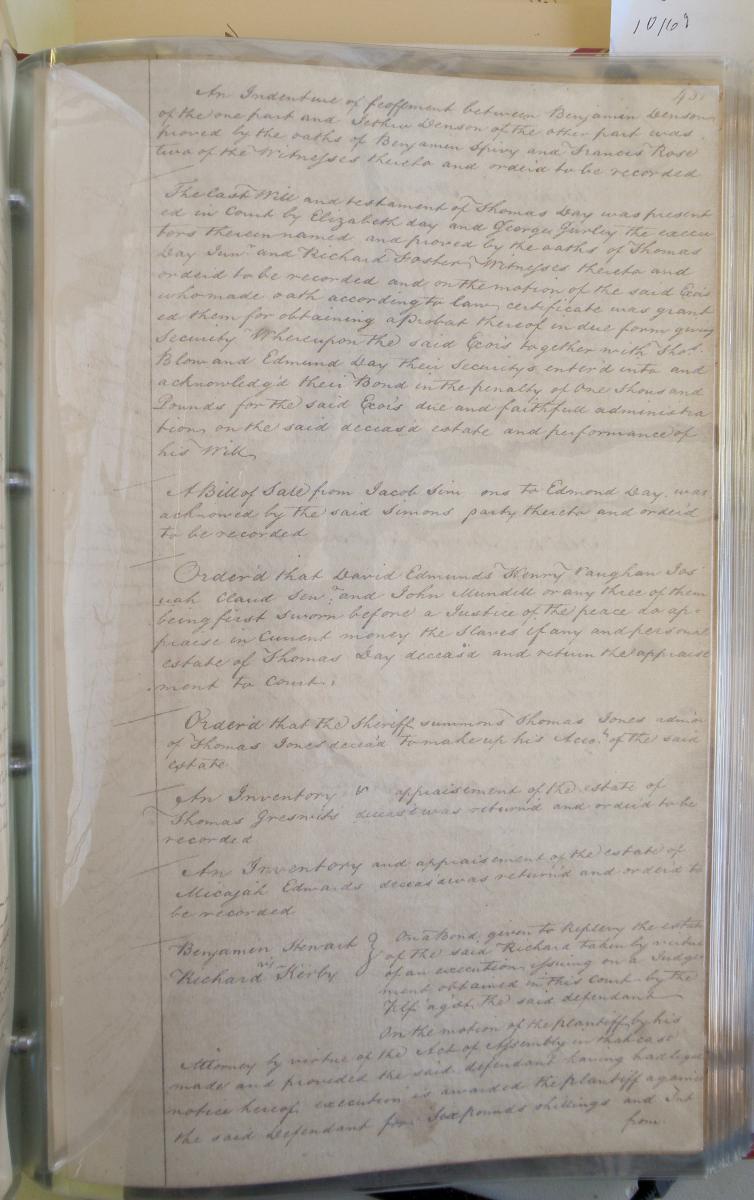 10/63
43
An Indenture of feoffment between Benjamin Denson
of the one part and Jethro Denson of the other part was
proved by the oaths of Benjamin Spivy and Francis Rose
two of the Witnesses thereto and order'd to be recorded
The last Will and testament of Thomas Day was present
ed in Court by Elizabeth day and George Gurley the execu
tors therein named and proved by the oaths of Thomas
Day Junr and Richard Foster Witnesses thereto and
order'd to be recorded and on the motion of the said Exors
who made oath according to law certificate was grant
ed them for obtaining a probat thereof in due form giving
Security Whereupon the said Exors together with Thos
Blow and Edmund Day their Securitys enter'd into and
acknowledg'd their Bond in the penalty of One Thousand
Pounds for the said Exors due and faithfull administra
tion on the said deceas'd estate and performance of
his Will
A Bill of Sale from Jacob Sim ons to Edmond Day was
acknowed by the said Simons party thereto and order'd
to be recorded
Order'd that David Edmunds Henry Vaughan Jos
uah Claud Senr and John Mundell or any three of them
being first sworn before a Justice of the peace do ap-
praise in Current money the Slaves if any and personal
estate of Thomas Day deceas'd and return the appraise
ment to Court.
Order'd that the Sheriff summons Thomas Jones admor
of Thomas Jones deceas'd to make up his Acct of the said
estate
An Inventory appraisement of the estate of
Thomas deceas'd was return'd and order'd to be
recorded
An Inventory and appraisement of the estate of
Micajah Edwards deceas'd was return'd and order'd to
be recorded
Benjamin Stewart
vs
Richard Kerby
On a Bond given to Replevy the estate
of the said Richard taken by virtue
of an execution issuing on a Judge
ment obtained in this Court by the
Plf agst the said defendant
On the motion of the plantiff by his
Attorney by virtue of the Act of Assembly in that case
made and provided the said defendant having had legal
notice hereof execution is awarded the plantiff against
the said Defendant for Six pounds shillings and Int
from